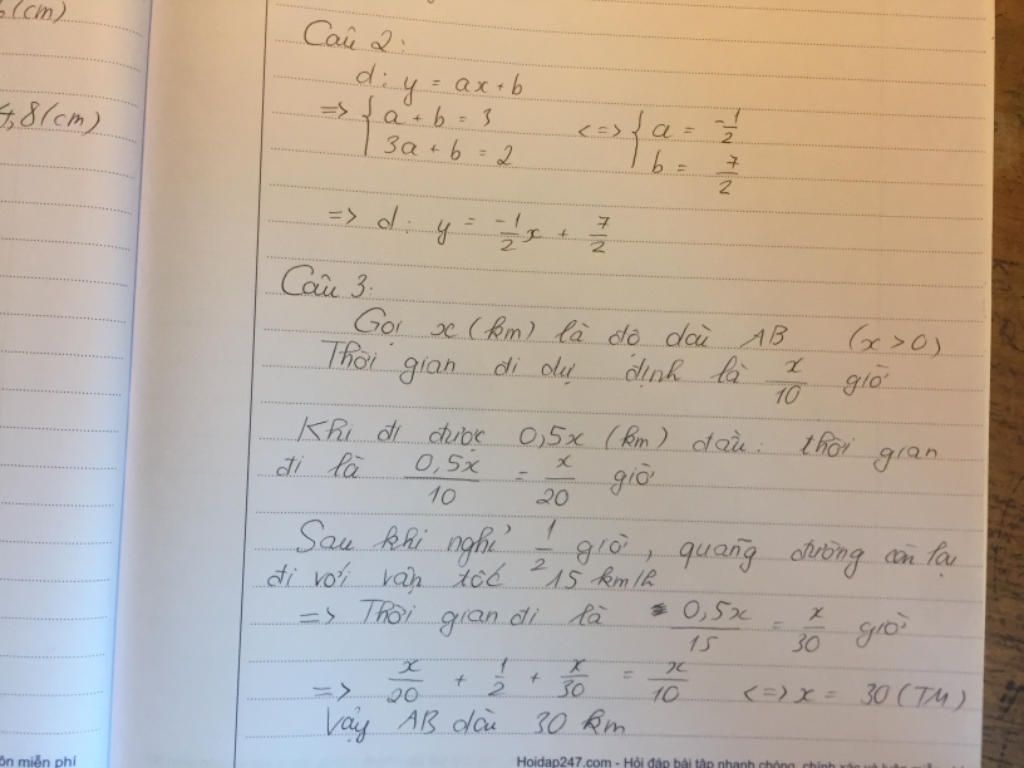 (cm)
4,8(cm)
Câu 2:
d: y = ax + b
=> { a + b = 3 <=> { a = -1/2
3a + b = 2 b = 7/2
=> d: y = -1/2 x + 7/2
Câu 3:
Gọi x (km) là độ dài AB (x > 0)
Thời gian đi dự định là x/10 giờ
Khi đi được 0,5x (km) đầu: thời gian
đi là 0,5x/10 = x/20 giờ
Sau khi nghỉ 1/2 giờ, quãng đường còn lại
đi với vận tốc 15 km/h
=> Thời gian đi là 0,5x/15 = x/30 giờ
=> x/20 + 1/2 + x/30 = x/10 <=> x = 30 (TM)
Vậy AB dài 30 km
ôn miễn phí
Hoidap247.com - Hỏi đáp bài tập nhanh chóng, chính xác và